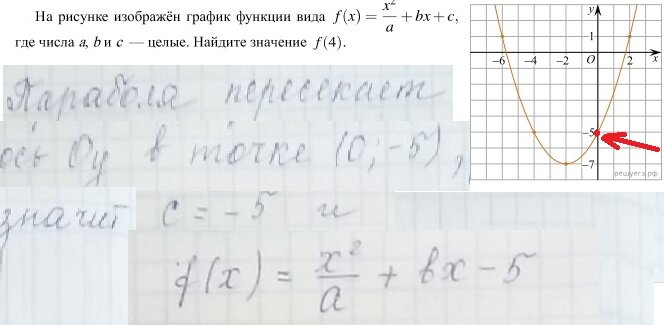 На рисунке изображён график функции вида f(x) = x²/a + bx + c,
где числа a, b и c — целые. Найдите значение f(4).
y
1
-6 -4 -2 0 2 x
-5
-7
решуегэ.рф
Парабола пересекает
ось Oy в точке (0; -5),
значит c = -5 и
f(x) = x²/a + bx - 5